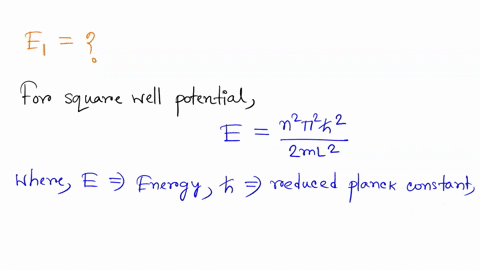 E₁ = ?
For square well potential,
E = n²π²ħ² / 2mL²
where, E ⇒ Energy, ħ ⇒ reduced planck constant,